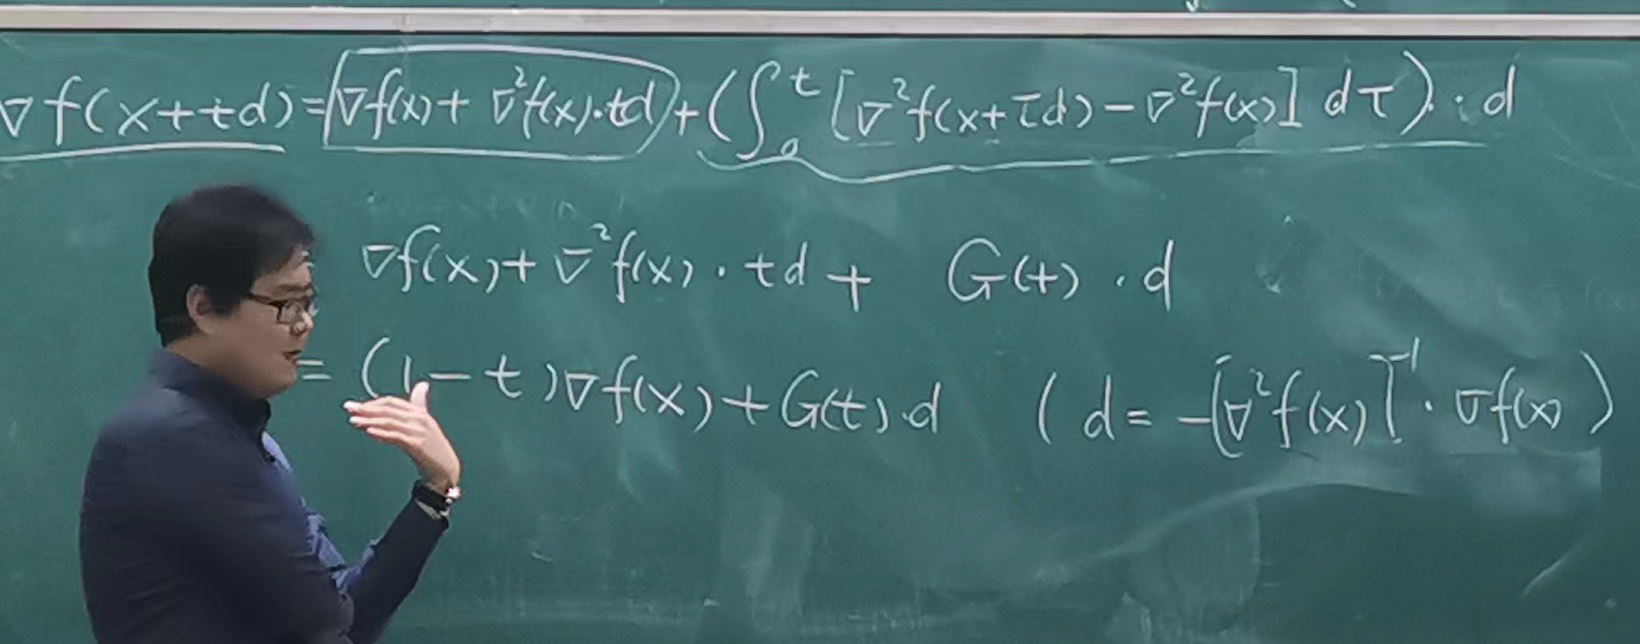 ∇f(x+td)=∇f(x)+∇²f(x)·td+(∫₀ᵗ[∇²f(x+τd)-∇²f(x)]dτ)·d
∇f(x)+∇²f(x)·td+G(t)·d
=(1-t)∇f(x)+G(t)·d (d=-[∇²f(x)]⁻¹·∇f(x))